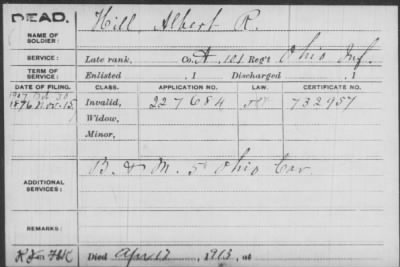 DEAD.
NAME OF SOLDIER: Hill, Albert R.
SERVICE: Late rank, Co. A, 101 Reg't Ohio Inf.
TERM OF SERVICE: Enlisted , 1 Discharged , 1
DATE OF FILING. CLASS. APPLICATION NO. LAW. CERTIFICATE NO.
1876 Nov. 15 Invalid, 227684 732957
Widow,
Minor,
ADDITIONAL SERVICES: B. & M. 5" Ohio Cav.
REMARKS:
Died Apr. 12, 1913, at